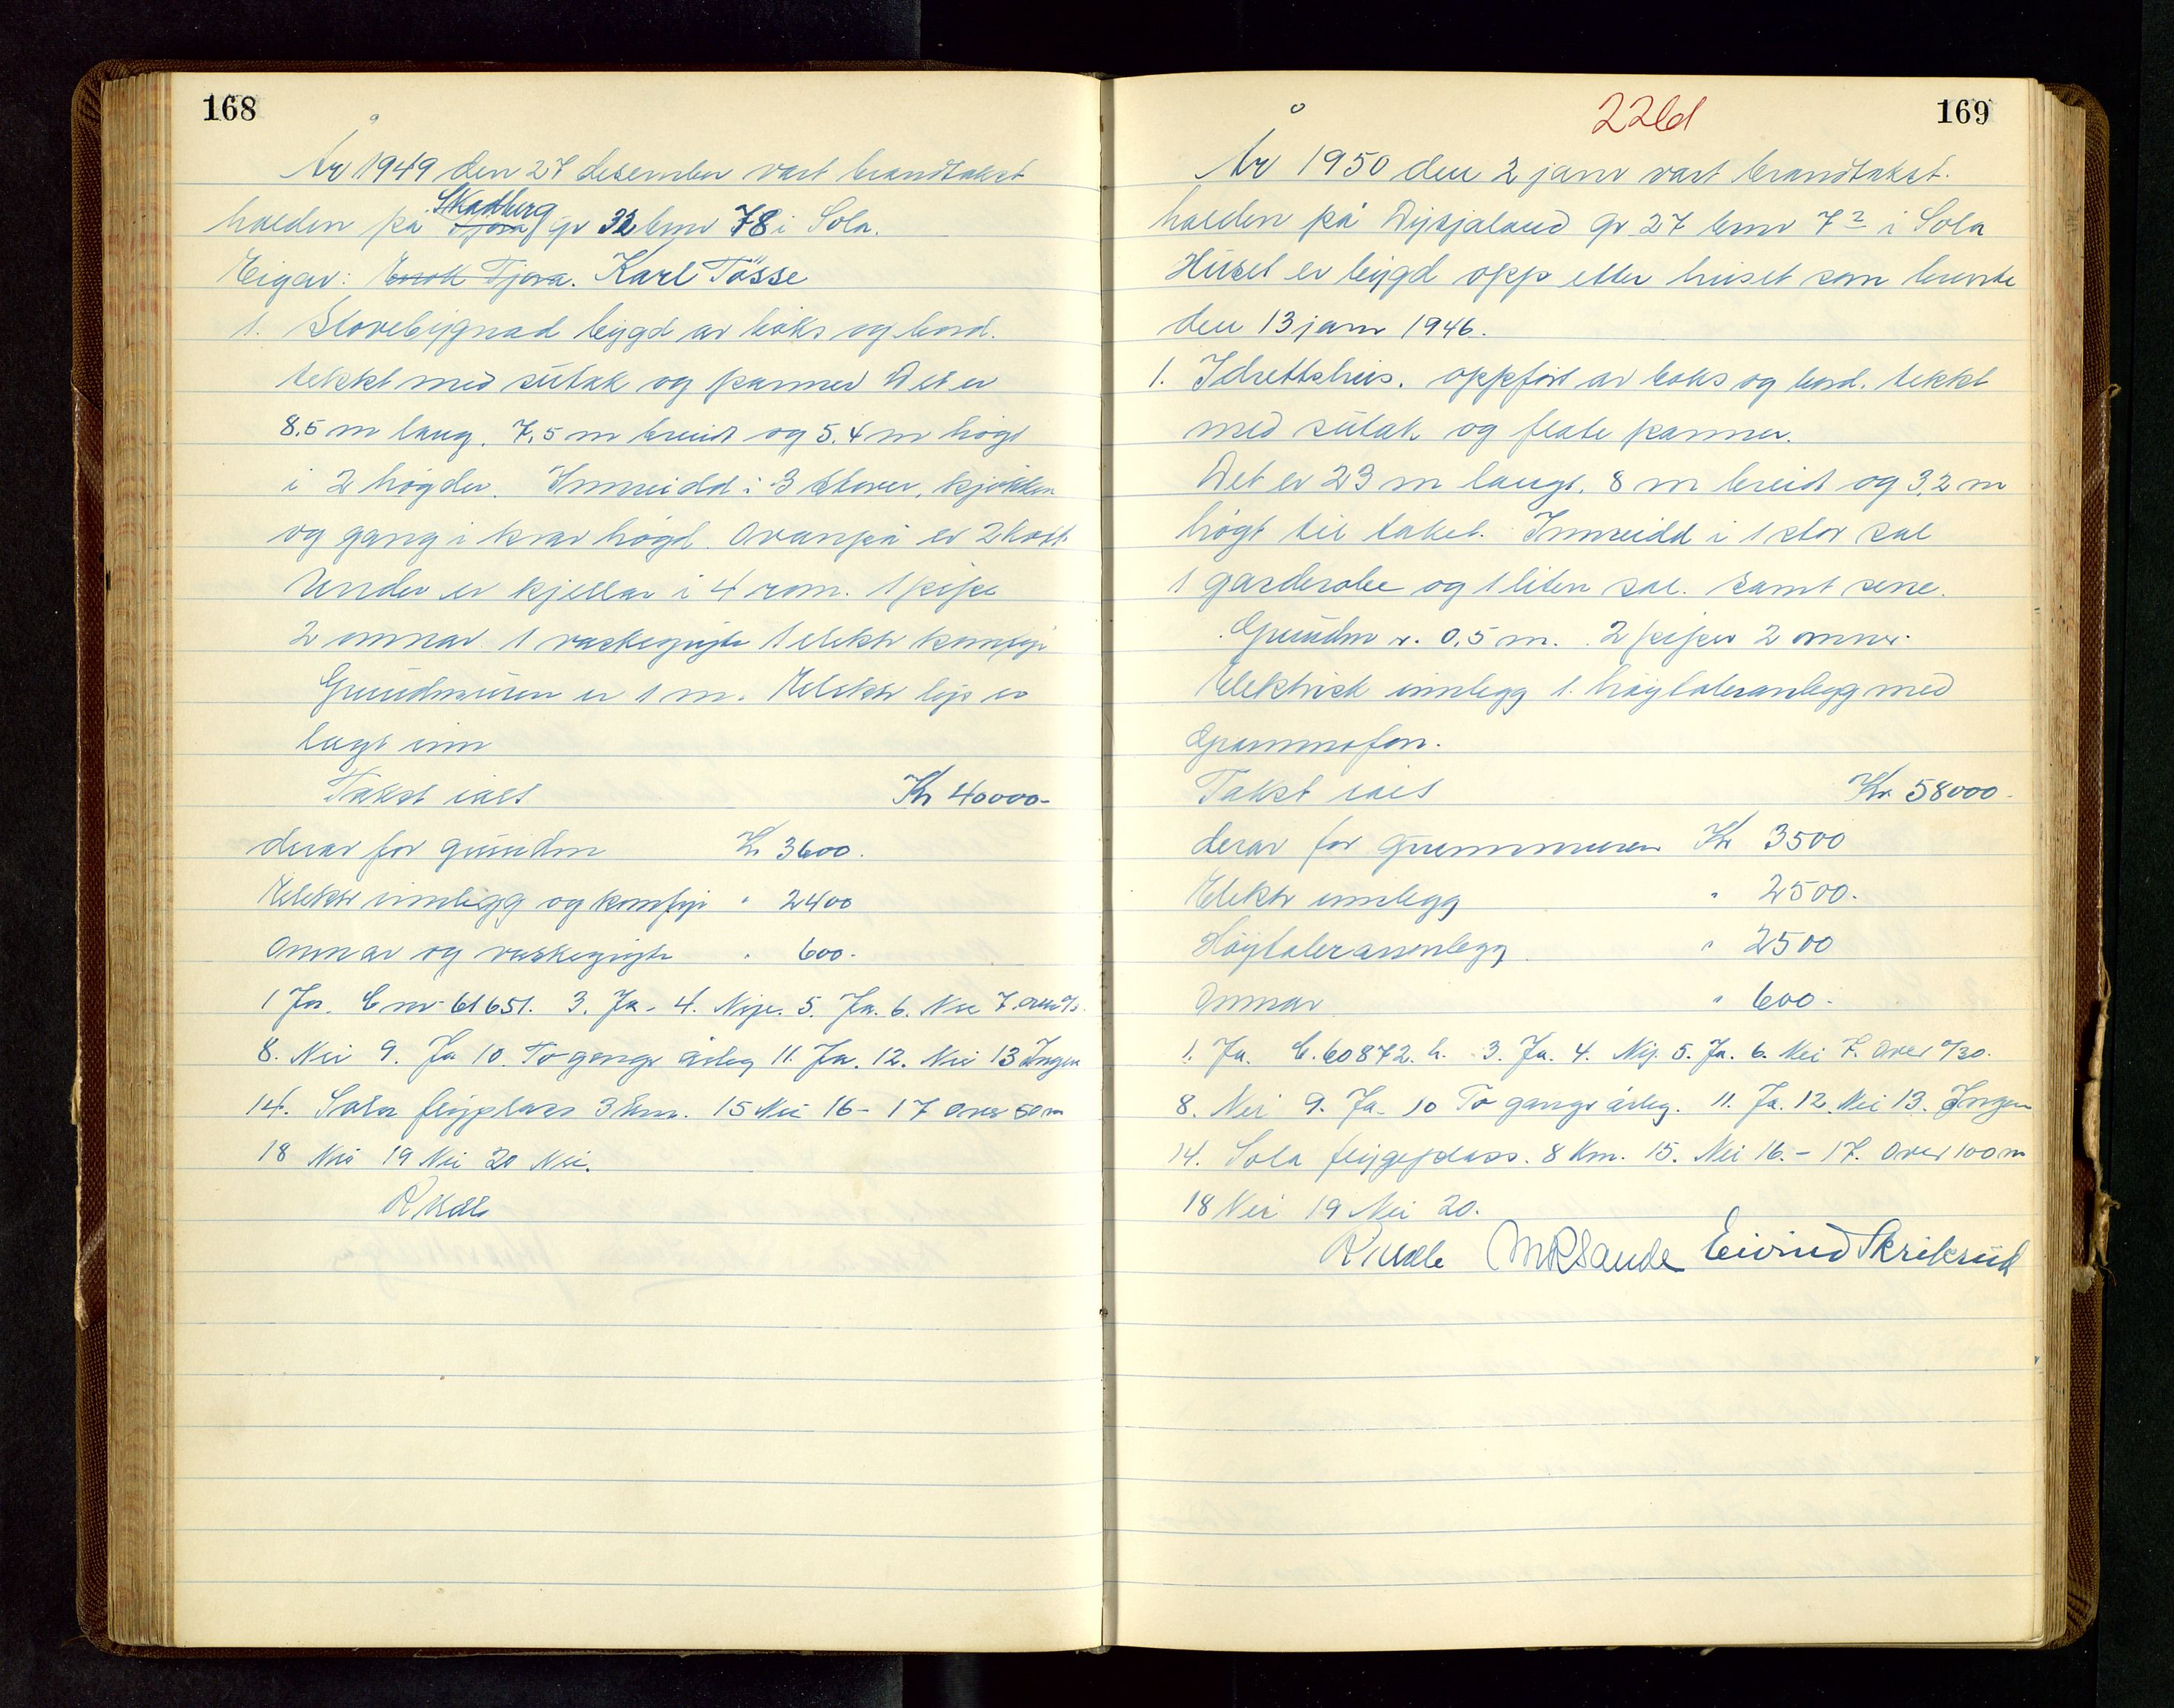 168
År 1949 den 27 desember vart brandtakst
halden på Skadberg Tjora gr 32 bnr 78 i Sola.
Eigar: Enok Tjora. Karl Tøsse
1. Stovebygnad bygd av boks og bord.
tekkt med sutak og panner Det er
8,5 m lang. 7,5 m breidt og 5.4 m høgt
i 2 høgder. Innreidd i 3 stover, kjøkken
og gang i kvar høgd. Ovanpå er 2 kott
Under er kjellar i 4 rom. 1 pipe
2 omnar 1 vaskegryte 1 elektr komfyr
Grundmuren er 1 m. Elektr lys er
lagt inn
Takst ialt Kr 40000-
derav for grundm Kr 3600.
Elektr innlegg og komfyr " 2400
Omnar og vaskegryte " 600-
1 Ja. C nr 61651. 3. Ja. 4. Nye. 5. Ja. 6. Nei 7. over
8. Nei 9. Ja 10. To gonge årleg 11. Ja. 12. Nei 13 Ingen
14. Sola flyplass 3 km. 15 Nei 16- 17 over 50 m
18 Nei 19 Nei 20 Nei.
R Udle
22bd
169
År 1950 den 2 janr vart brandtakst.
halden på Dysjaland gr 27 bnr 72 i Sola
Huset er bygd opp etter huset som brende
den 13 janr 1946.
1. Idrettshus. oppført av boks og bord. tekkt
med sutak og flate panner.
Det er 23 m langt, 8 m breidt og 3,2 m
høgt til taket. Innreidd i 1 stor sal
1 garderobe og 1 liten sal. samt sene.
Grundm v. 0,5 m. 2 piper 2 omner.
Elektrisk innlegg 1. høytaleranlegg med
Grammofon.
Takst ialt Kr 58000-
derav for grunnmuren Kr 3500
Elektr innlegg " 2500-
Høytaleranlegg " 2500
Omnar " 600-
1. Ja. C. 60872. h. 3. Ja. 4. Ny. 5. Ja. 6. Nei 7. Over 0/30.
8. Nei 9. Ja 10 To gange årleg. 11. Ja. 12. Nei 13. Ingen
14. Sola flygeplass. 8 Km. 15. Nei 16.- 17. Over 100 m
18 Nei 19 Nei 20.
R Udle M R Sande Eivind Skrikrud